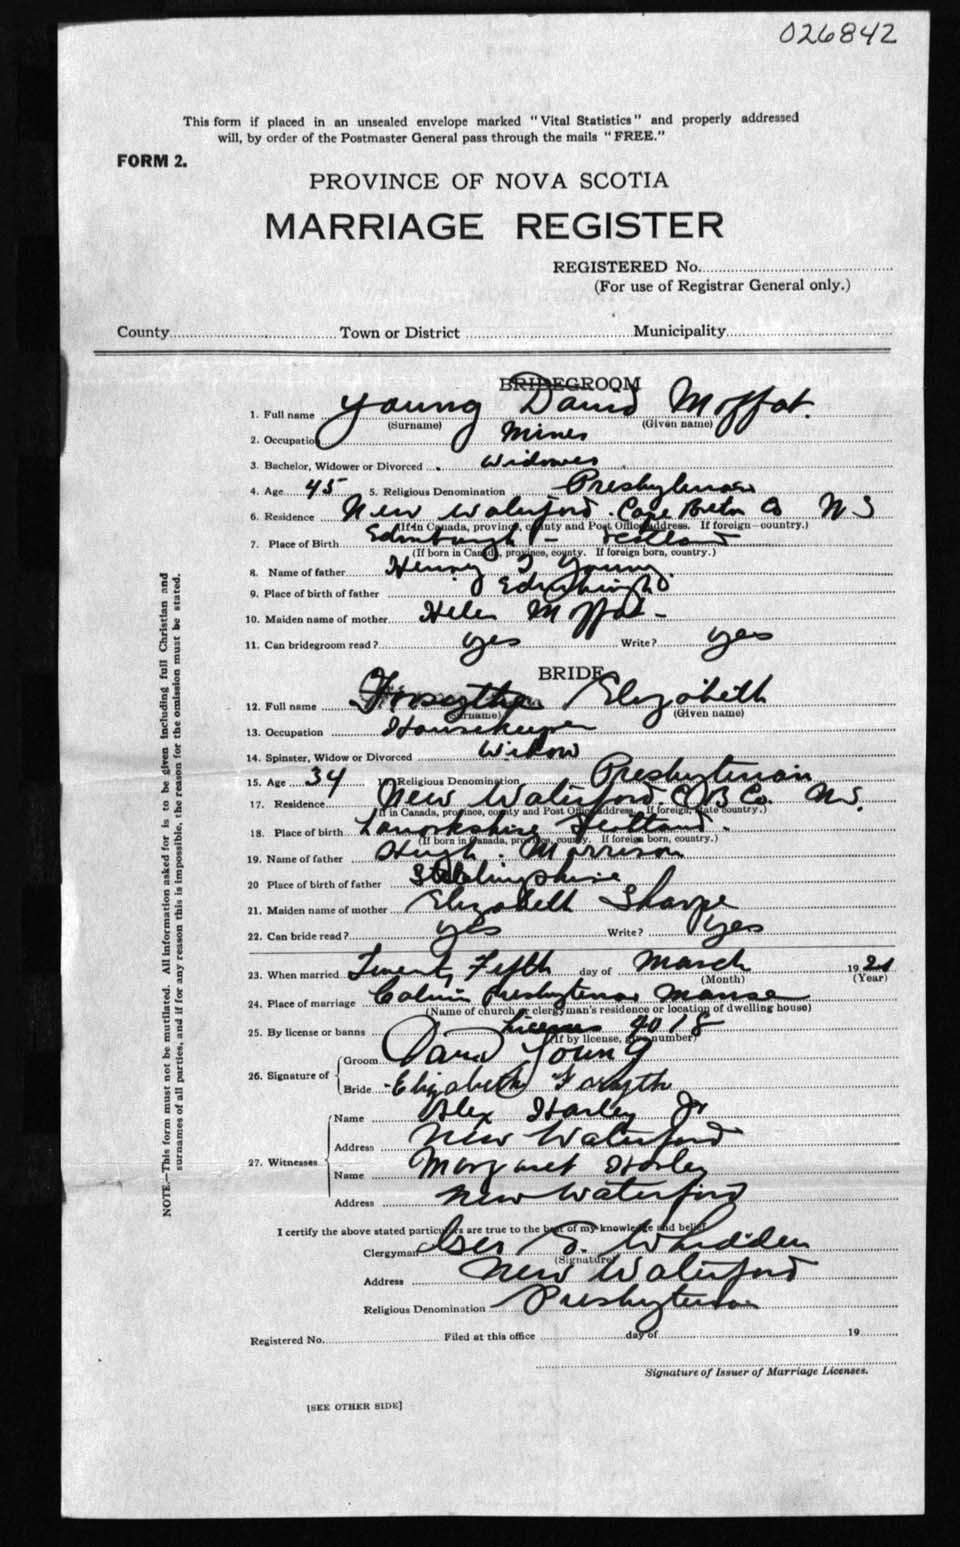 026842
This form if placed in an unsealed envelope marked "Vital Statistics" and properly addressed
will, by order of the Postmaster General pass through the mails "FREE."
FORM 2.
PROVINCE OF NOVA SCOTIA
MARRIAGE REGISTER
REGISTERED No.
(For use of Registrar General only.)
County Town or District Municipality
BRIDEGROOM
1. Full name Young David Moffat.
(Surname) (Given name)
2. Occupation Miner
3. Bachelor, Widower or Divorced Widower
4. Age 45 5. Religious Denomination Presbyterian
6. Residence New Waterford. Cape Breton Co NS
(If in Canada, province, county and Post Office address. If foreign—country.)
7. Place of Birth Edinburgh - Scotland
(If born in Canada, province, county. If foreign born, country.)
8. Name of father Henry T Young.
9. Place of birth of father Edinburgh
10. Maiden name of mother Helen Moffat -
11. Can bridegroom read? yes Write? yes
BRIDE
12. Full name Forsythe Elizabeth
(Surname) (Given name)
13. Occupation Housekeeper
14. Spinster, Widow or Divorced Widow
15. Age 34 Religious Denomination Presbyterian
17. Residence New Waterford. C B Co. N.S.
(If in Canada, province, county and Post Office address. If foreign, state country.)
18. Place of birth Lanarkshire Scotland.
(If born in Canada, province, county. If foreign born, country.)
19. Name of father Hugh Morrison
20 Place of birth of father Stirlingshire
21. Maiden name of mother Elizabeth Sharpe
22. Can bride read? yes Write? yes
23. When married Twenty Fifth day of March 1921
(Month) (Year)
24. Place of marriage Calvin Presbyterian Manse
(Name of church or clergyman's residence or location of dwelling house)
25. By license or banns License 2018
(If by license, give number)
26. Signature of
Groom David Young
Bride Elizabeth Forsythe
27. Witnesses
Name Alex Harley Jr
Address New Waterford
Name Margaret Harley
Address New Waterford
I certify the above stated particulars are true to the best of my knowledge and belief
Clergyman S. Whidden
(Signature)
Address New Waterford
Religious Denomination Presbyterian
Registered No. Filed at this office day of 19
Signature of Issuer of Marriage Licenses.
[SEE OTHER SIDE]
NOTE.—This form must not be mutilated. All information asked for is to be given including full Christian and
surnames of all parties, and if for any reason this is impossible, the reason for the omission must be stated.